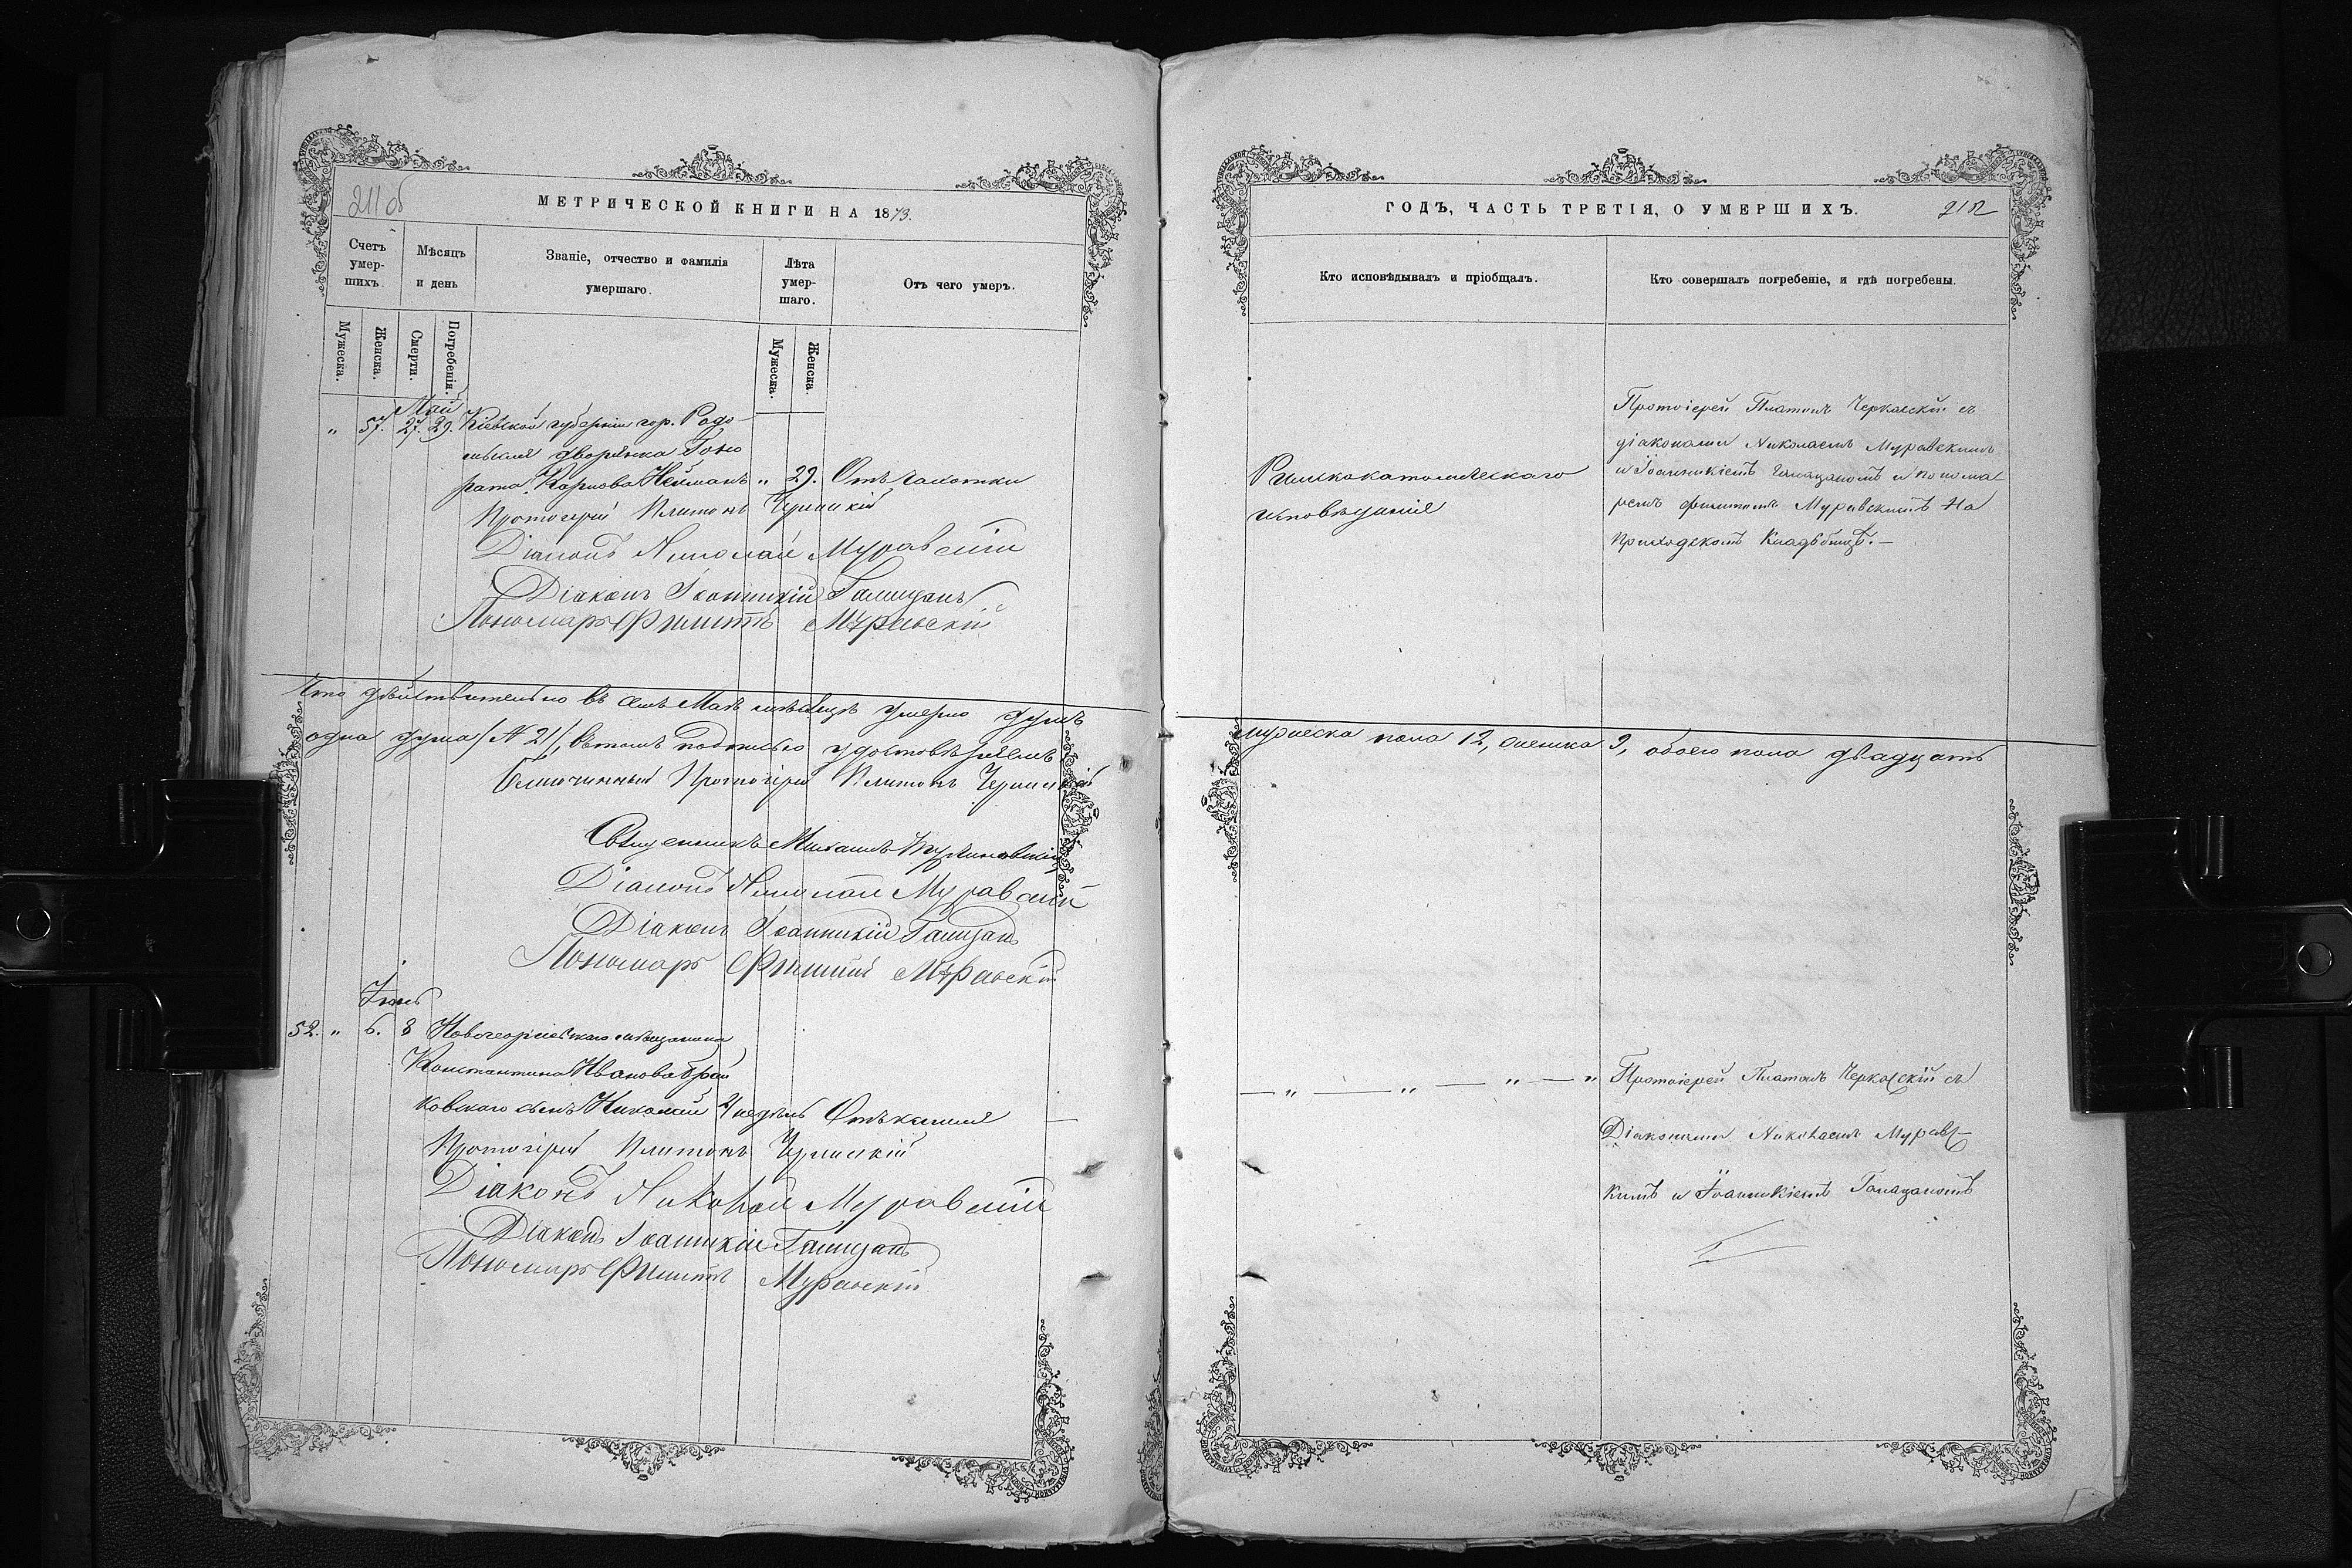 211 об
МЕТРИЧЕСКОЙ КНИГИ НА 1873.
Счетъ умер-шихъ.
Мѣсяцъ и день
Званіе, отчество и фамилія умершаго.
Лѣта умер-шаго.
Отъ чего умеръ.
Мужеска.
Женска.
Смерти.
Погребенія.
Мужеска.
Женска
Май
" 57. 27. 29. Кіевской губерніи гор. Радо-
мысля дворянка Гоно
рата Карлова Нейманъ " 29. Отъ чахотки
Протоіерей Платонъ Черкаскій
Діаконъ Николай Муравскій
Діаконъ Іоанникій Галицанъ
Пономаръ Филиппъ Муравскій
Что дѣйствительно въ семъ Маѣ мѣсяцѣ умерло душъ
одна душа / № 21 /, въ томъ подписью удостовѣряемъ
Благочинный Протоіерей Платонъ Черкаскій
Священникъ Михаилъ
Діаконъ Николай Муравскій
Діаконъ Іоанникій Галицанъ
Пономаръ Филиппъ Муравскій
Іюнь
52. " 6. 8 Новогеоргіевскаго мѣщанина
Константина Иванова Брай
ковскаго сынъ Николай 2 недѣль Отъ кашля
Протоіерей Платонъ Черкаскій
Діаконъ Николай Муравскій
Діаконъ Іоанникій Галицанъ
Пономаръ Филиппъ Муравскій
ГОДЪ, ЧАСТЬ ТРЕТІЯ, О УМЕРШИХЪ.
212
Кто исповѣдывалъ и пріобщалъ.
Кто совершалъ погребеніе, и гдѣ погребены.
Римскокатолическаго
исповѣданія
Протоіерей Платонъ Черкаскій съ
діаконами Николаемъ Муравскимъ
и Іоанникіемъ Галицаномъ и понома
ремъ Филиппомъ Муравскимъ на
приходскомъ кладбищѣ.—
мужеска пола 12, женска 9, обоего пола двадцать
— " — " — " — "
Протоіерей Платонъ Черкаскій съ
Діаконами Николаемъ Муравс-
кимъ и Іоанникіемъ Галицаномъ